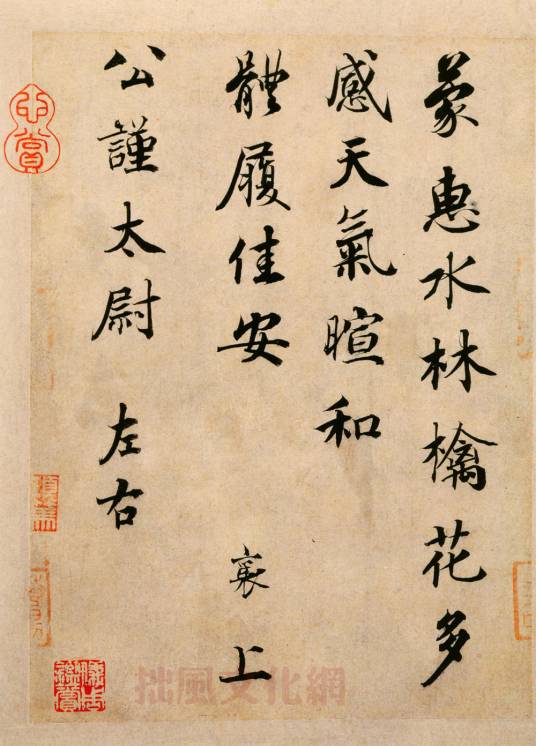 蒙惠水林檎花多
感天氣暄和
體履佳安 襄 上
公謹太尉 左右
拙風文化網